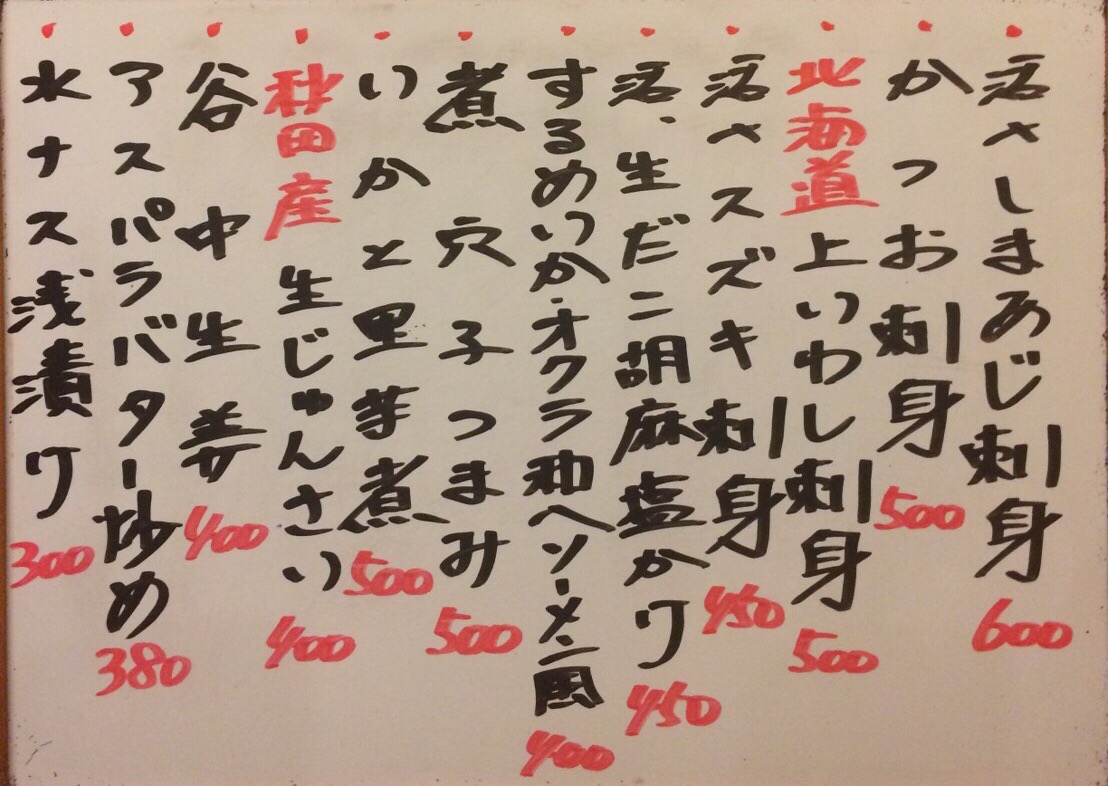 活〆しまあじ刺身 600
かつお刺身 500
北海道上いわし刺身 500
活〆スズキ刺身 450
活、生だこ胡麻塩かけ 450
するめいか・オクラ和へソーメン風 400
煮穴子つまみ 500
いかと里芋煮 500
秋田産生じゅんさい 400
谷中生姜 400
アスパラバター炒め 380
水ナス浅漬け 300